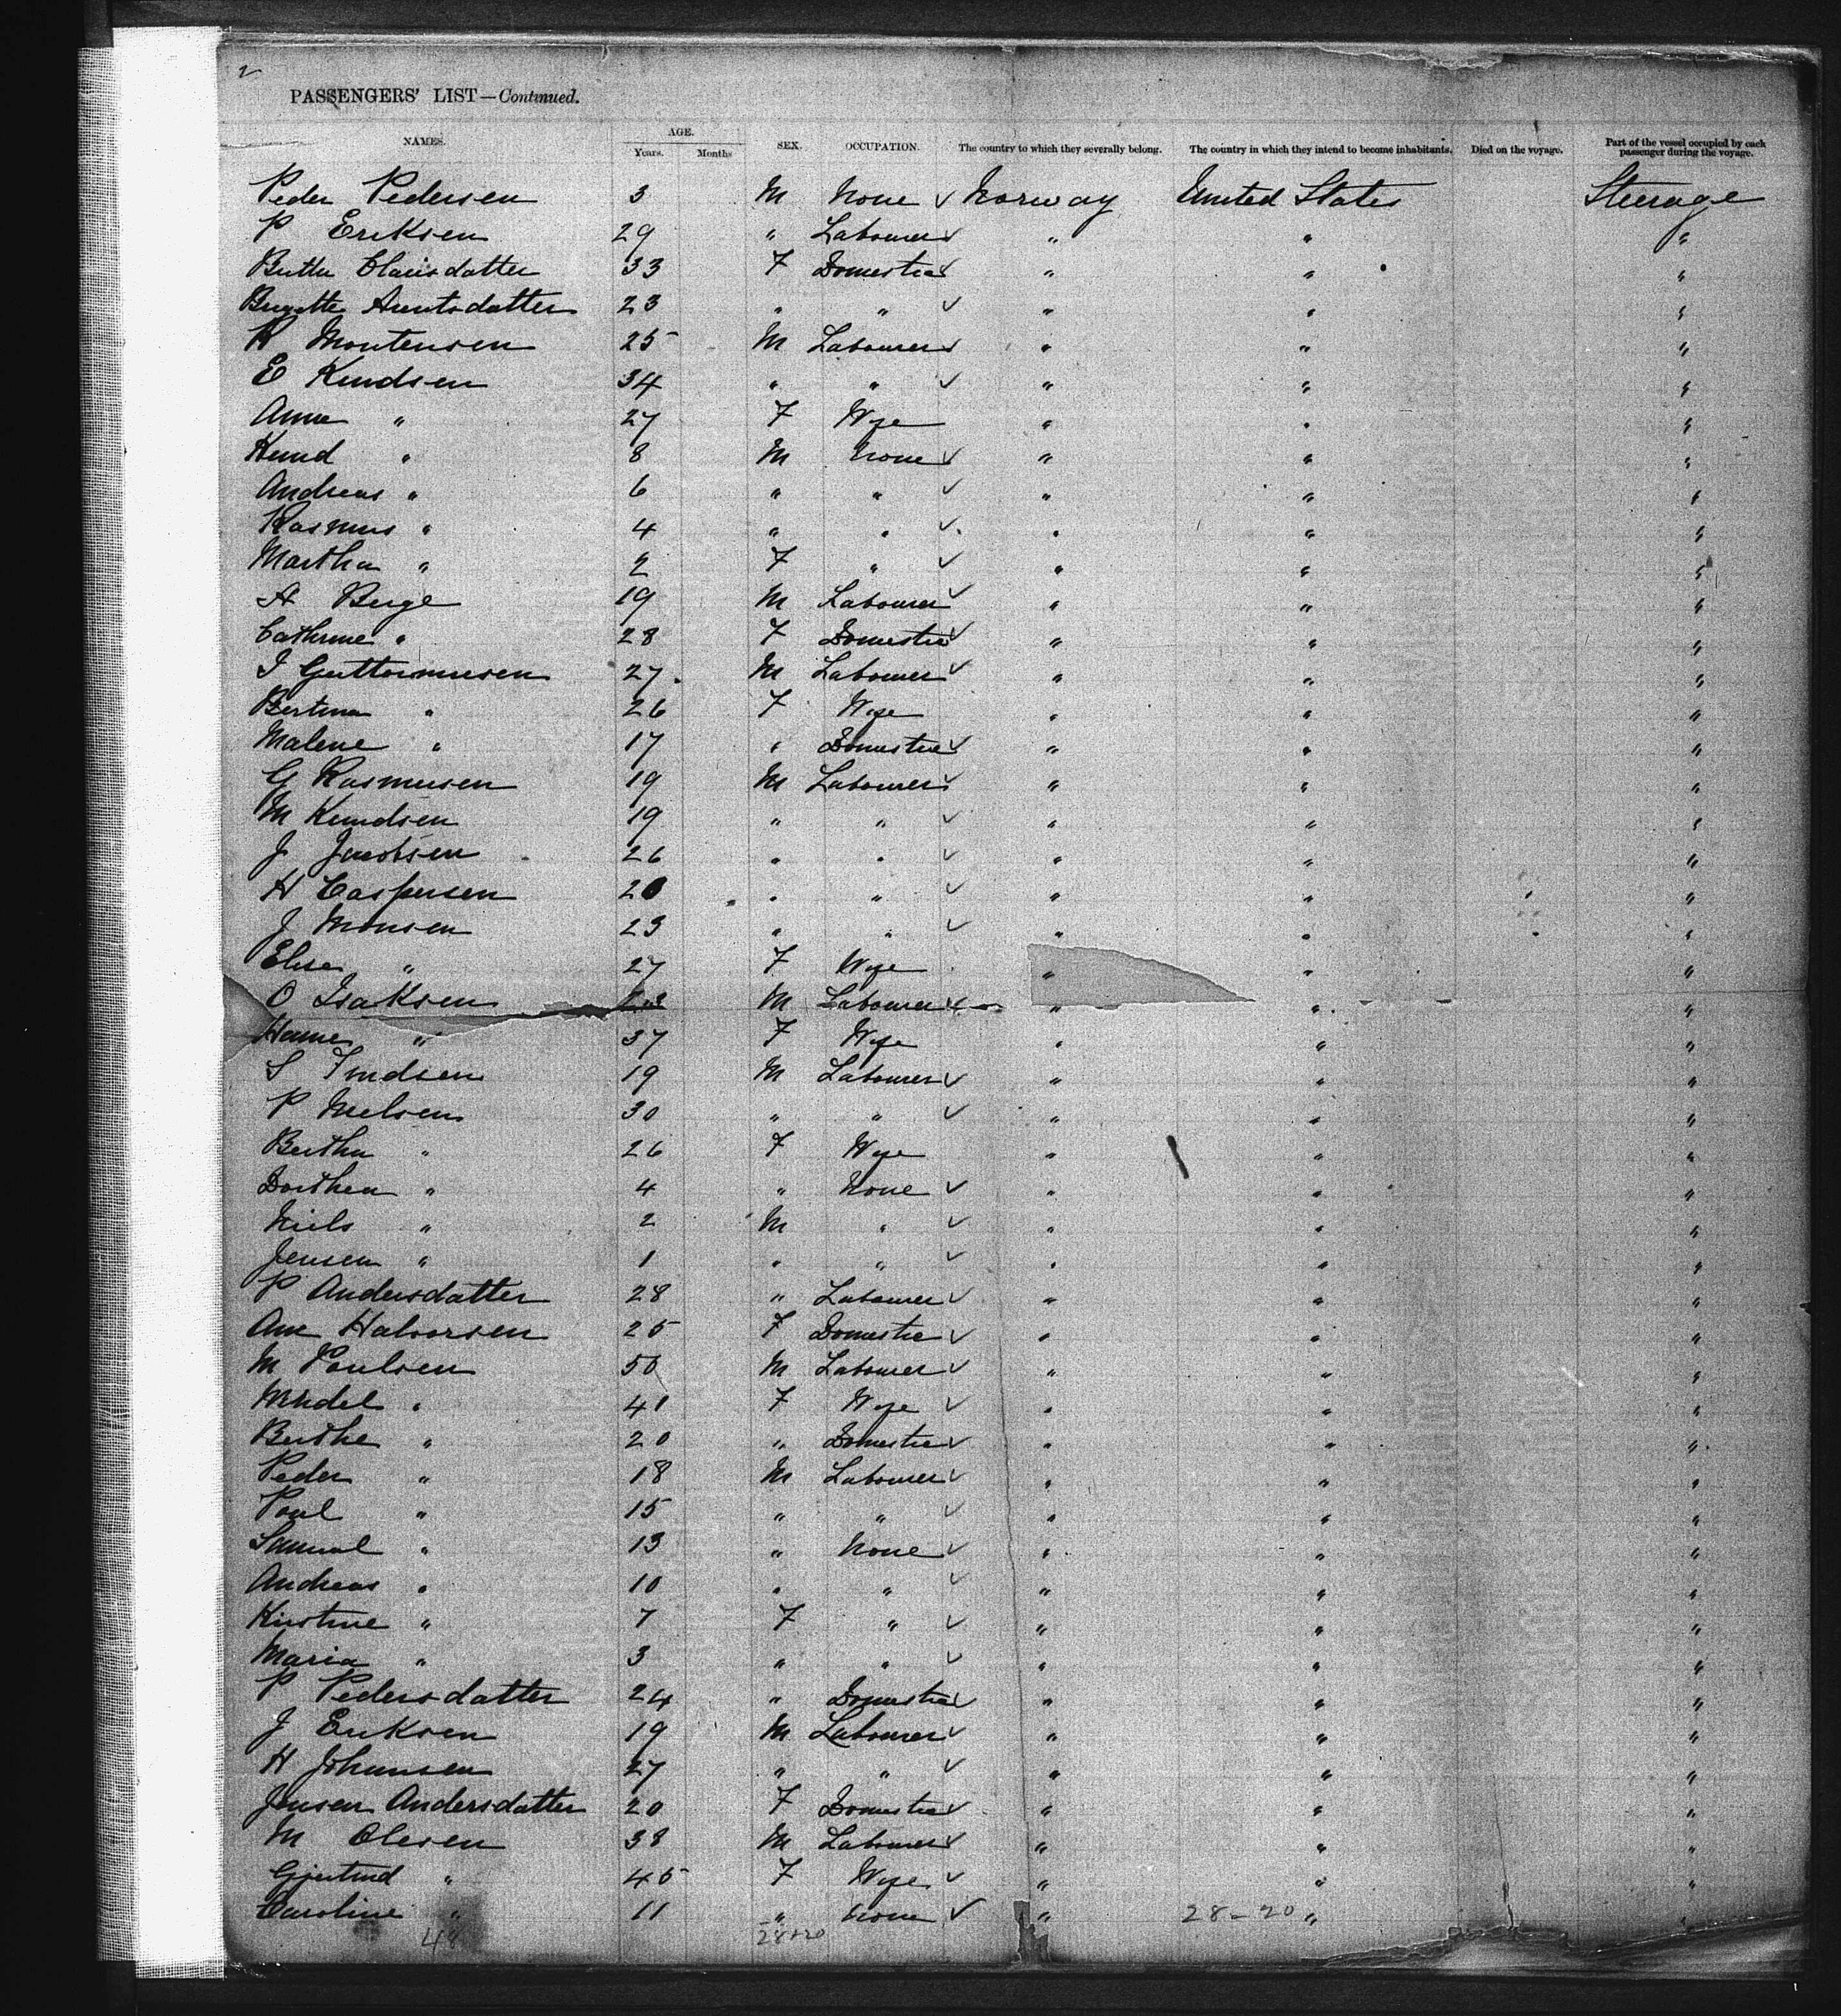 2
PASSENGERS' LIST—Continued.
NAMES. AGE. Years. Months SEX. OCCUPATION. The country to which they severally belong. The country in which they intend to become inhabitants. Died on the voyage. Part of the vessel occupied by each passenger during the voyage.
Peder Pedersen 3 M None ✓ Norway United States Steerage
P Eriksen 29 " Labourer ✓ " " "
Clausdatter 33 F Domestic ✓ " " "
23 " " ✓ " " "
Mortensen 25 M Labourer ✓ " " "
E Knudsen 34 " " ✓ " " "
Anna " 27 F Wife " " "
Knud " 8 M None ✓ " " "
Andreas " 6 " " ✓ " " "
Rasmus " 4 " " ✓ " " "
Martha " 2 F " ✓ " " "
A Berge 19 M Labourer ✓ " " "
Cathrine " 28 F Domestic ✓ " " "
Guttormsen 27 M Labourer ✓ " " "
Bertina " 26 F Wife " " "
Malene " 17 " Domestic ✓ " " "
G Rasmusen 19 M Labourer ✓ " " "
M Knudsen 19 " " ✓ " " "
J Jacobsen 26 " " ✓ " " "
H Caspersen 20 " " ✓ " " "
J Monsen 23 " " ✓ " " "
Elise " 27 F Wife " " "
O Isaksen M Labourer ✓ " " "
Hanne " 37 F Wife " " "
S 19 M Labourer ✓ " " "
P Nielsen 30 " " ✓ " " "
Bertha " 26 F Wife " " "
Dorthea " 4 " None ✓ " " "
Niels " 2 M " ✓ " " "
Jensen " 1 " " ✓ " " "
P Andersdatter 28 " Labourer ✓ " " "
Ane Halvorsen 25 F Domestic ✓ " " "
M Paulsen 50 M Labourer ✓ " " "
" 41 F Wife ✓ " " "
Berthe " 20 " Domestic ✓ " " "
Peder " 18 M Labourer ✓ " " "
Paul " 15 " " ✓ " " "
Samual " 13 " None ✓ " " "
Andreas " 10 " " ✓ " " "
Kirstine " 7 F " ✓ " " "
Maria " 3 " " ✓ " " "
P Pedersdatter 24 " Domestic ✓ " " "
J Eriksen 19 M Labourer ✓ " " "
H Johansen 27 " " ✓ " " "
Jensen Andersdatter 20 F Domestic ✓ " " "
M Olesen 38 M Labourer ✓ " " "
Gjertrud " 45 F Wife ✓ " " "
Caroline " 11 " None ✓ " 28-20 " "
48 28+20